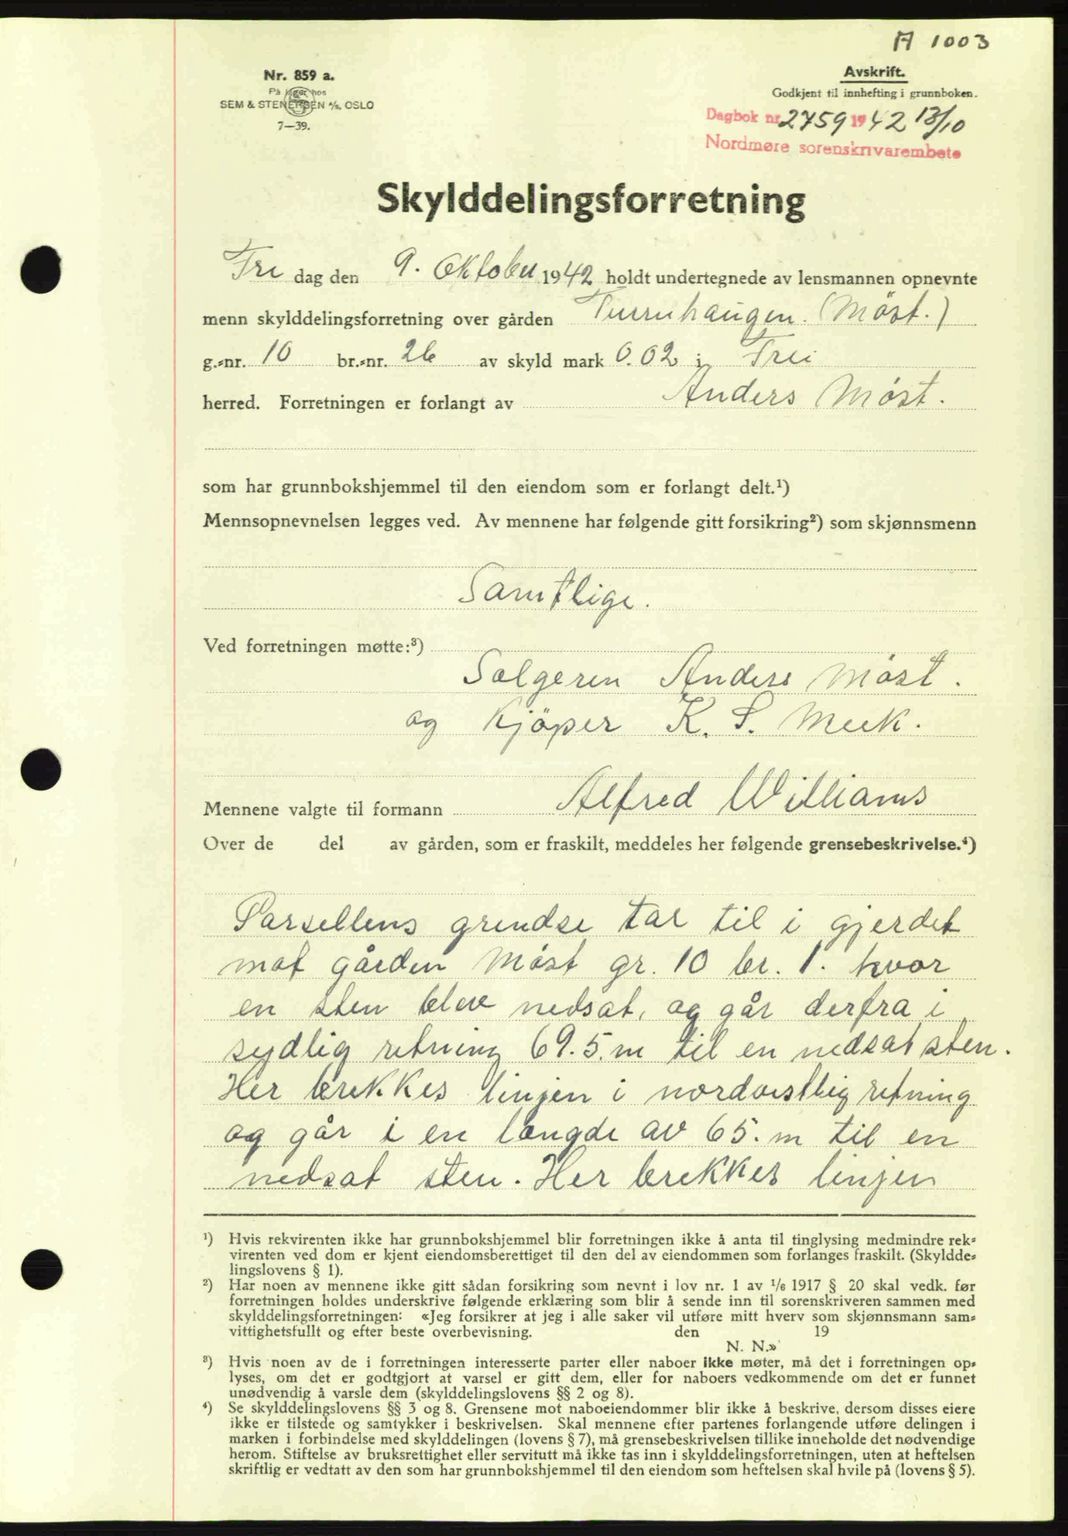 A 1003
Nr. 859 a.
På lager hos
SEM & STENERSEN A/S, OSLO
7—39.
Avskrift.
Godkjent til innhefting i grunnboken.
Dagbok nr. 2759 1942 13/10
Nordmøre sorenskrivarembete
Skylddelingsforretning
Fre dag den 9. Oktober 1942 holdt undertegnede av lensmannen opnevnte
menn skylddelingsforretning over gården Furruhaugen. (Møst.)
g.-nr. 10 br.-nr. 26 av skyld mark 0.02 i Frei
herred. Forretningen er forlangt av Anders Møst.
som har grunnbokshjemmel til den eiendom som er forlangt delt.¹)
Mennsopnevnelsen legges ved. Av mennene har følgende gitt forsikring²) som skjønnsmenn
Samtlige.
Ved forretningen møtte:³)
Sælgeren Anders Møst.
og Kjöper K. S. Meek.
Mennene valgte til formann Alfred Williams
Over de del av gården, som er fraskilt, meddeles her følgende grensebeskrivelse.⁴)
Parsellens grendse tar til i gjerdet
mot gården Møst gr. 10 br. 1. hvor
en sten blev nedsat, og går derfra i
sydlig retning 69.5. m til en nedsat sten.
Her brekkes linjen i nordvestlig retning
og går i en længde av 65. m til en
nedsat sten. Her brekkes linjen
¹) Hvis rekvirenten ikke har grunnbokshjemmel blir forretningen ikke å anta til tinglysing medmindre rek-
virenten ved dom er kjent eiendomsberettiget til den del av eiendommen som forlanges fraskilt. (Skyldde-
lingslovens § 1).
²) Har noen av mennene ikke gitt sådan forsikring som nevnt i lov nr. 1 av 1/6 1917 § 20 skal vedk. før
forretningen holdes underskrive følgende erklæring som blir å sende inn til sorenskriveren sammen med
skylddelingsforretningen: «Jeg forsikrer at jeg i alle saker vil utføre mitt hverv som skjønnsmann sam-
vittighetsfullt og efter beste overbevisning. den 19
N. N.»
³) Hvis noen av de i forretningen interesserte parter eller naboer ikke møter, må det i forretningen op-
lyses, om det er godtgjort at varsel er gitt dem, eller for naboers vedkommende om det er funnet
unødvendig å varsle dem (skylddelingslovens §§ 2 og 8).
⁴) Se skylddelingslovens §§ 3 og 8. Grensene mot naboeiendommer blir ikke å beskrive, dersom disses eiere
ikke er tilstede og samtykker i beskrivelsen. Skal mennene efter partenes forlangende utføre delingen i
marken i forbindelse med skylddelingen (lovens § 7), må grensebeskrivelsen tillike inneholde det nødvendige
herom. Stiftelse av bruksrettighet eller servitutt må ikke tas inn i skylddelingsforretningen, uten at heftelsen
skriftlig er vedtatt av den som har grunnbokshjemmel til den eiendom som heftelsen skal hvile på (lovens § 5).